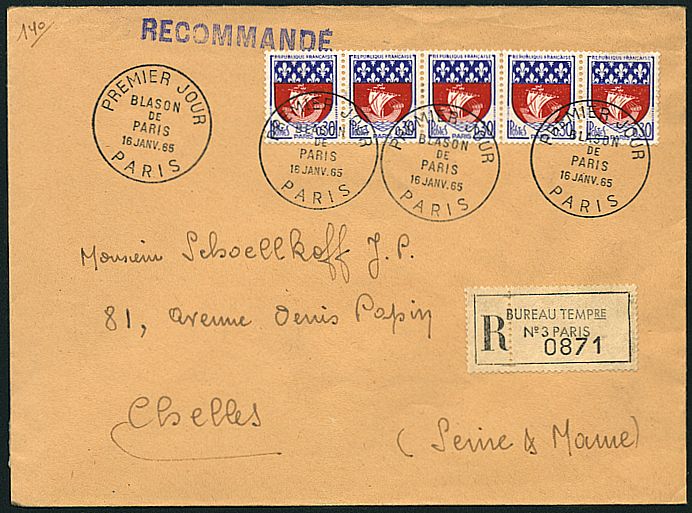 140
RECOMMANDÉ
RÉPUBLIQUE FRANÇAISE RÉPUBLIQUE FRANÇAISE RÉPUBLIQUE FRANÇAISE RÉPUBLIQUE FRANÇAISE RÉPUBLIQUE FRANÇAISE
0,30 0,30 0,30 0,30 0,30
Postes PARIS
PREMIER JOUR
BLASON
DE
PARIS
16 JANV. 65
PARIS
PREMIER JOUR
BLASON
DE
PARIS
16 JANV. 65
PARIS
PREMIER JOUR
BLASON
DE
PARIS
16 JANV. 65
PARIS
PREMIER JOUR
BLASON
DE
PARIS
16 JANV. 65
PARIS
Monsieur Schoellkoff J.P.
81, avenue Denis Papin
R
BUREAU TEMPRE
Nº 3 PARIS
0871
Chelles
(Seine & Marne)